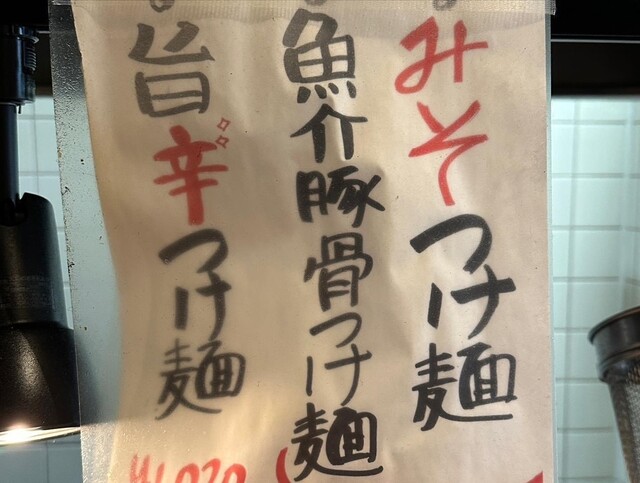 みそつけ麺
魚介豚骨つけ麺
旨辛つけ麺